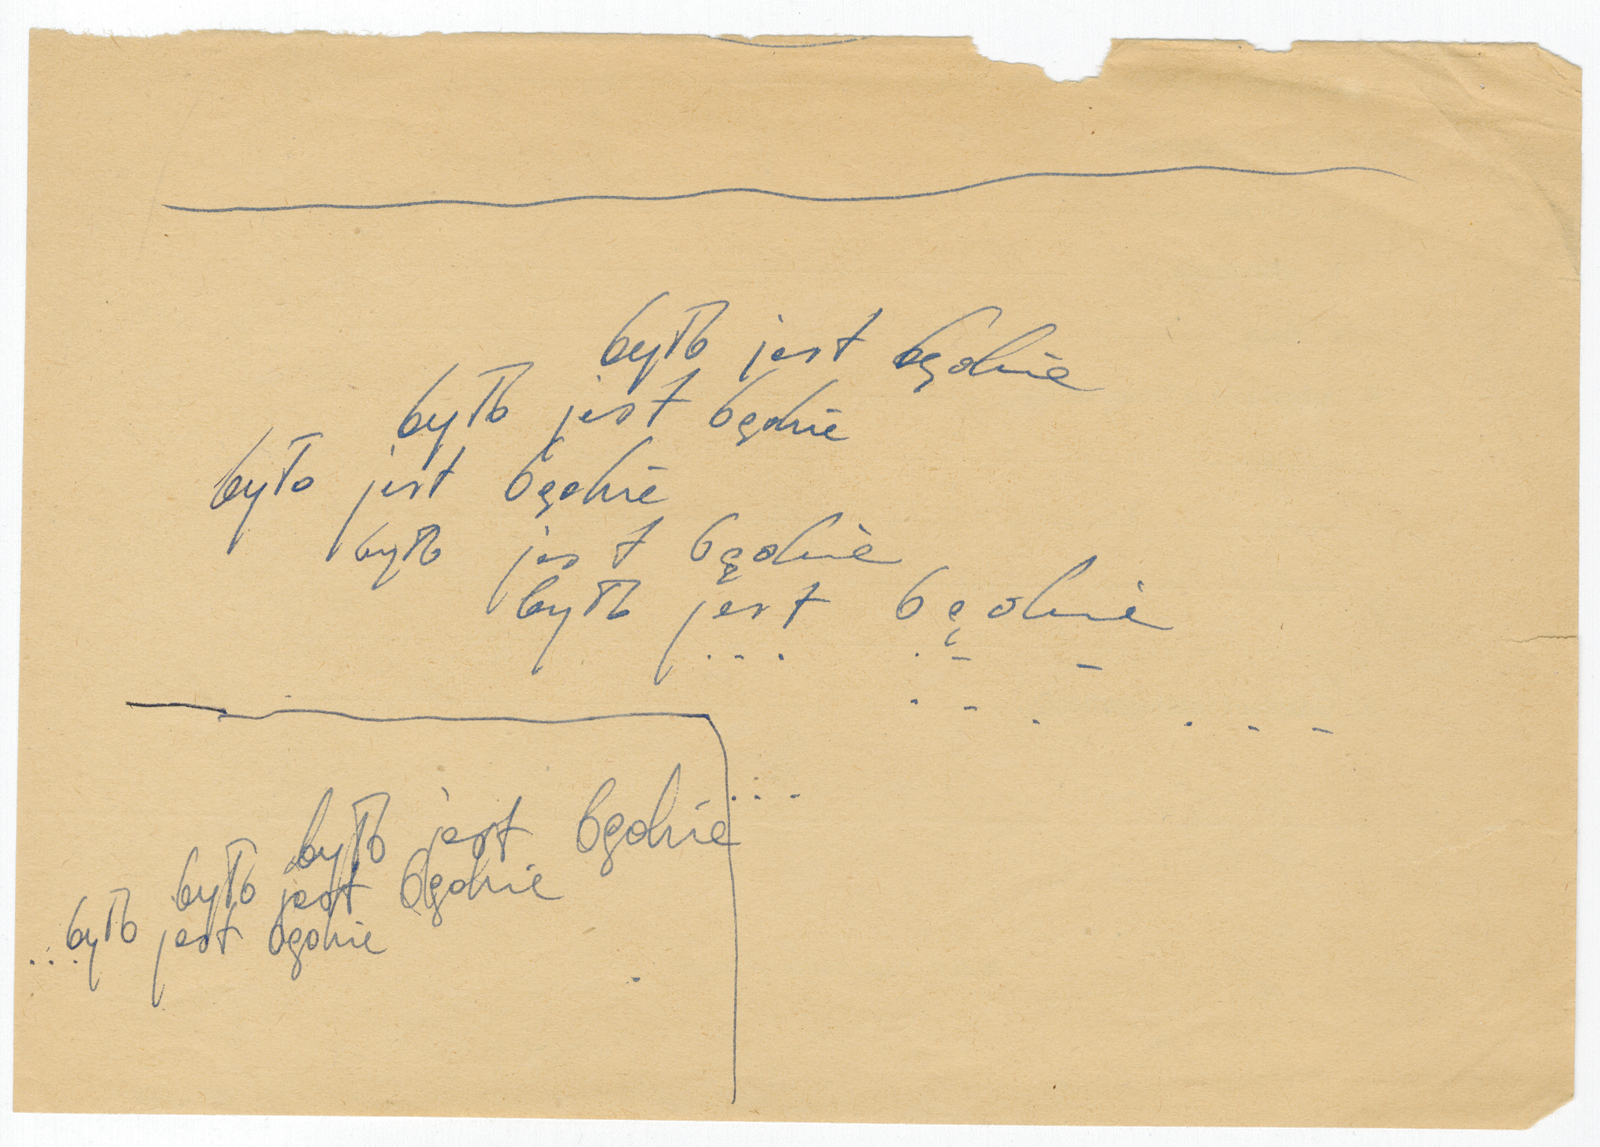 było jest będzie
było jest będzie
było jest będzie
było jest będzie
było jest będzie
... . - -
. - . . - -
było jest będzie...
było jest będzie
...było jest będzie